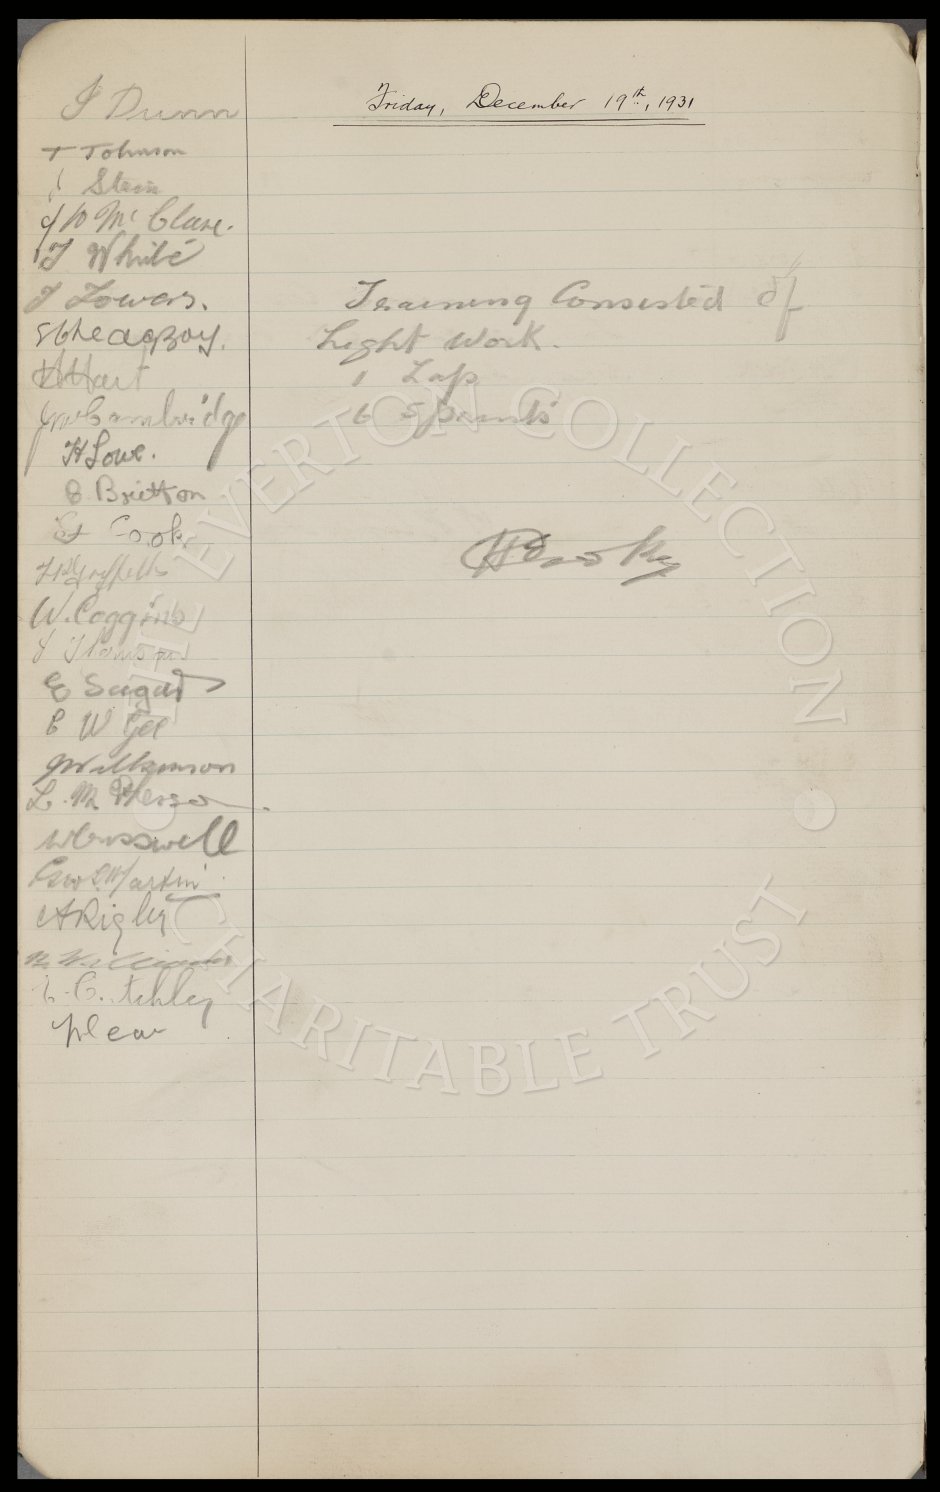 Friday, December 19th, 1931
J Dunn
T Johnson
J Stein
J W McClure.
T White
J Towers.
S Cheadgzoy.
H Hart
Jno Cambridge
H Lowe.
C Britton
Cook
W. Coggins
J Thomson
E Sagar
C W Gee
J Wilkinson
L. McPherson
W Cresswell
Geo S. Martin
A Rigby
B Williams
C. Ashley
Training Consisted of
Light Work.
1 Lap
6 Sprints
H E Cooke
THE EVERTON COLLECTION
CHARITABLE TRUST